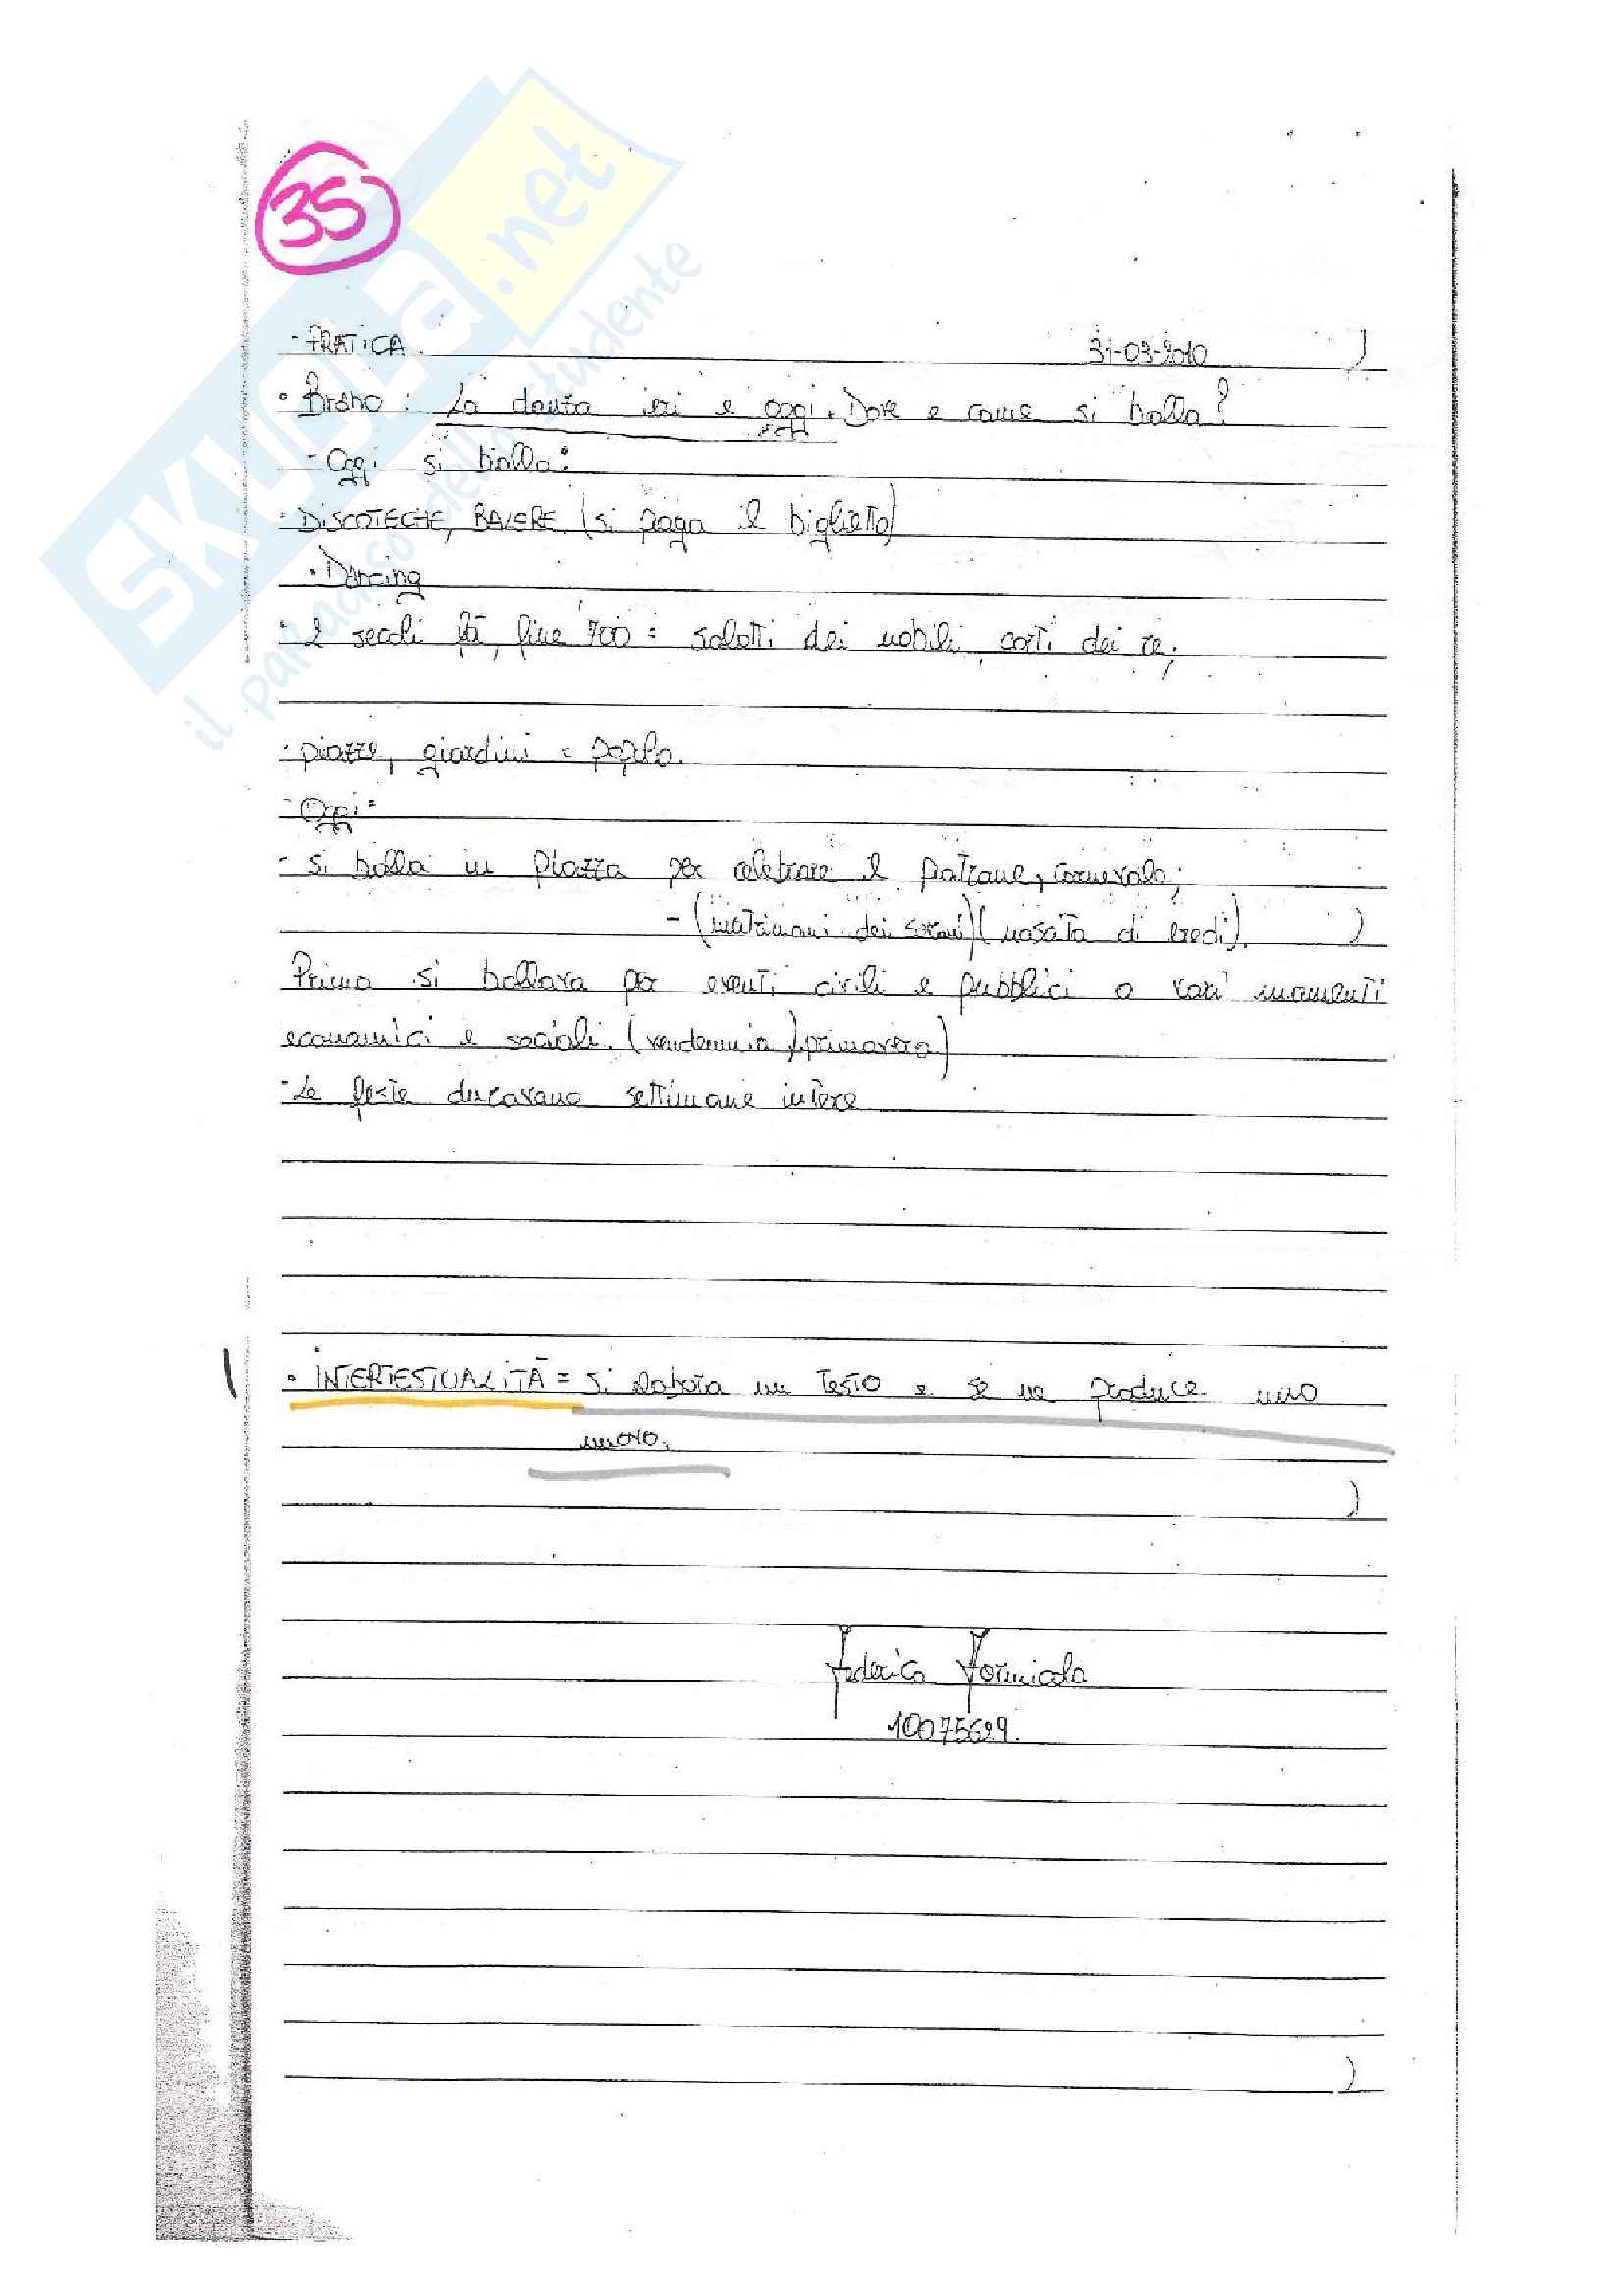 35
SKUOLA.net
il paradiso dello studente
- PRATICA. 31-03-2010
• Brano: La danza ieri e oggi. Dove e come si balla?
- Oggi si balla:
- DISCOTECHE, BALERE (si paga il biglietto)
• Dancing
• 2 secoli fà, fine '700 = salotti dei nobili, corti dei re;
- piazze, giardini = popolo.
- Oggi =
- si balla in piazza per celebrare il patrone, carnevale;
- (matrimoni dei sovrani) (nascita di eredi).
Prima si ballava per eventi civili e pubblici o vari momenti
economici e sociali. (vendemmia, primavera)
- Le feste duravano settimane intere
• INTERTESTUALITÀ = si elabora un testo e se ne produce uno
nuovo.
Federica Formicola
10075629.